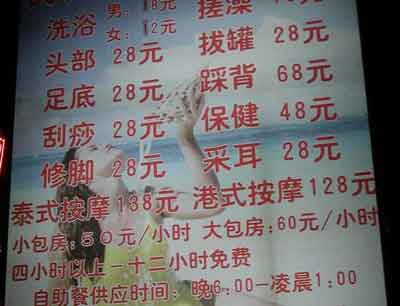 洗浴 男: 18元 搓澡
女: 12元
头部 28元 拔罐 28元
足底 28元 踩背 68元
刮痧 28元 保健 48元
修脚 28元 采耳 28元
泰式按摩 138元 港式按摩 128元
小包房: 50元/小时 大包房: 60元/小时
四小时以上一十二小时免费
自助餐供应时间: 晚6:00-凌晨1:00